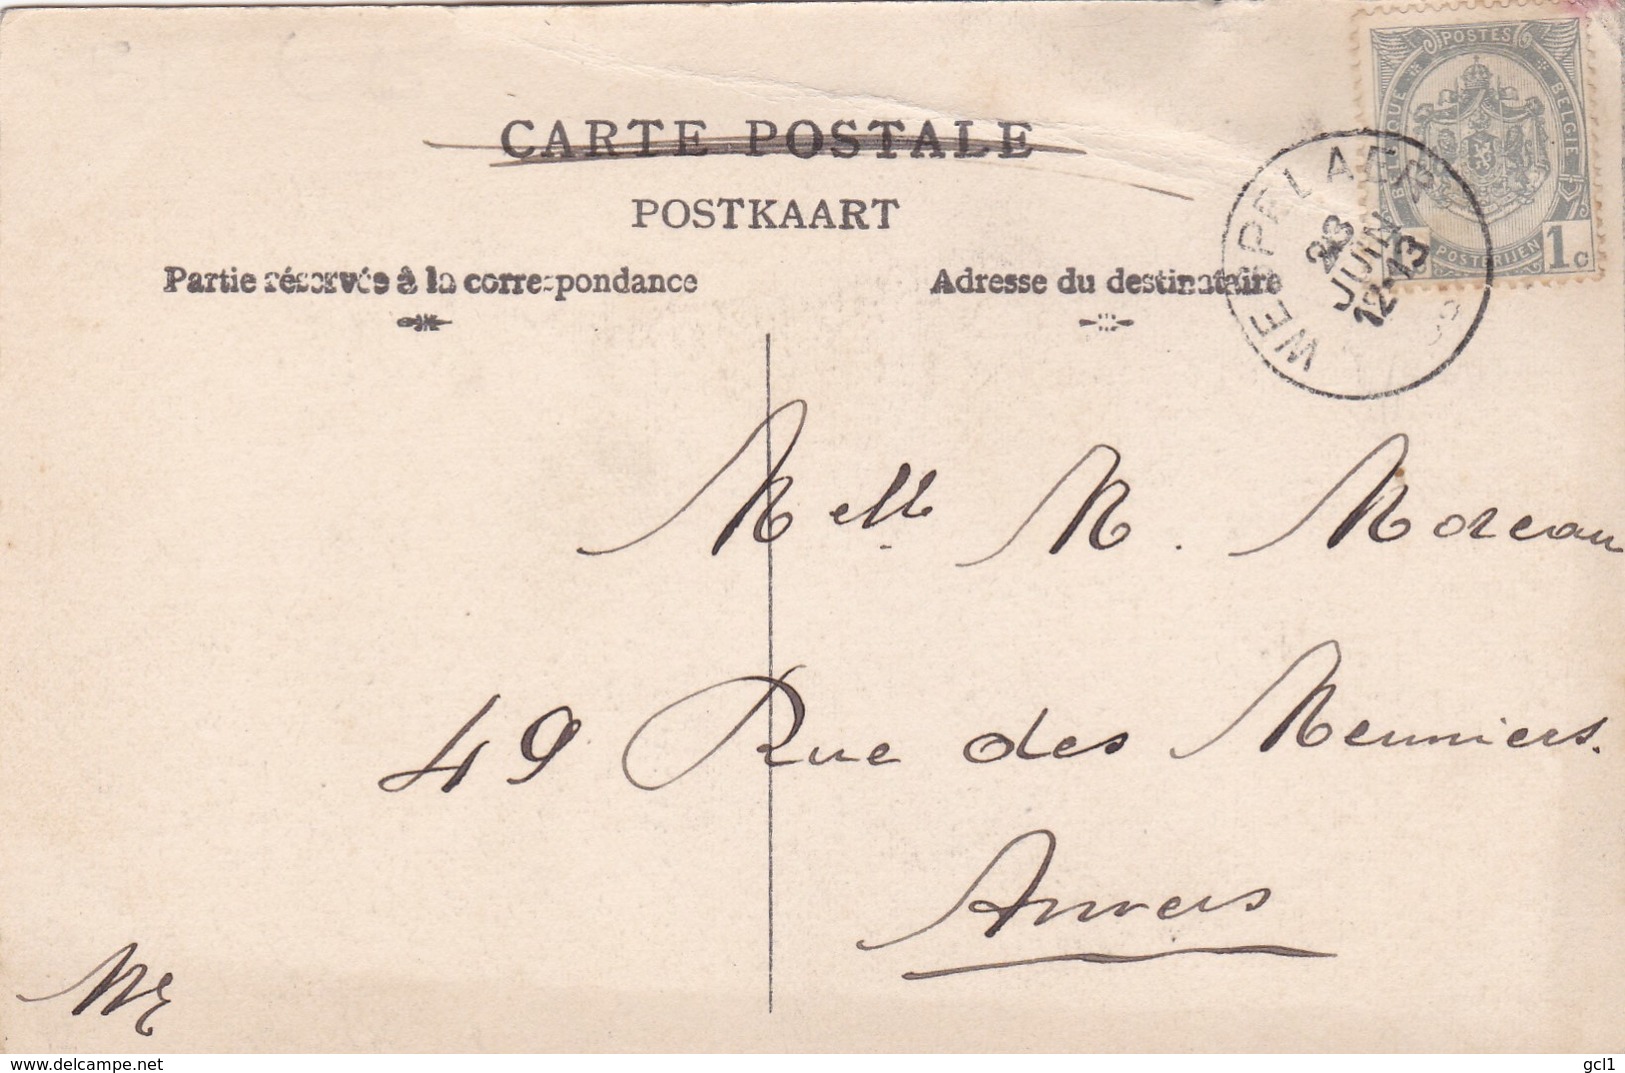 POSTES
BELGIQUE BELGIË
POSTERIJEN
1c
CARTE POSTALE
POSTKAART
Partie réservée à la correspondance
Adresse du destinataire
23
JUIN
12-13
Melle M. Moreau
49 Rue des Meuniers.
Anvers
delcampe.net
gcl1